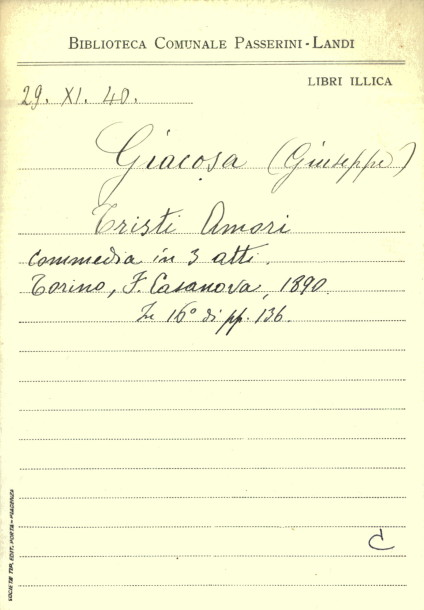 BIBLIOTECA COMUNALE PASSERINI-LANDI
LIBRI ILLICA
29. XI. 40.
Giacosa (Giuseppe)
Tristi Amori
commedia in 3 atti.
Torino, F. Casanova, 1890.
In 16° di pp. 136.
C
SOCIETÀ TIP. EDIT. PORTA - PIACENZA